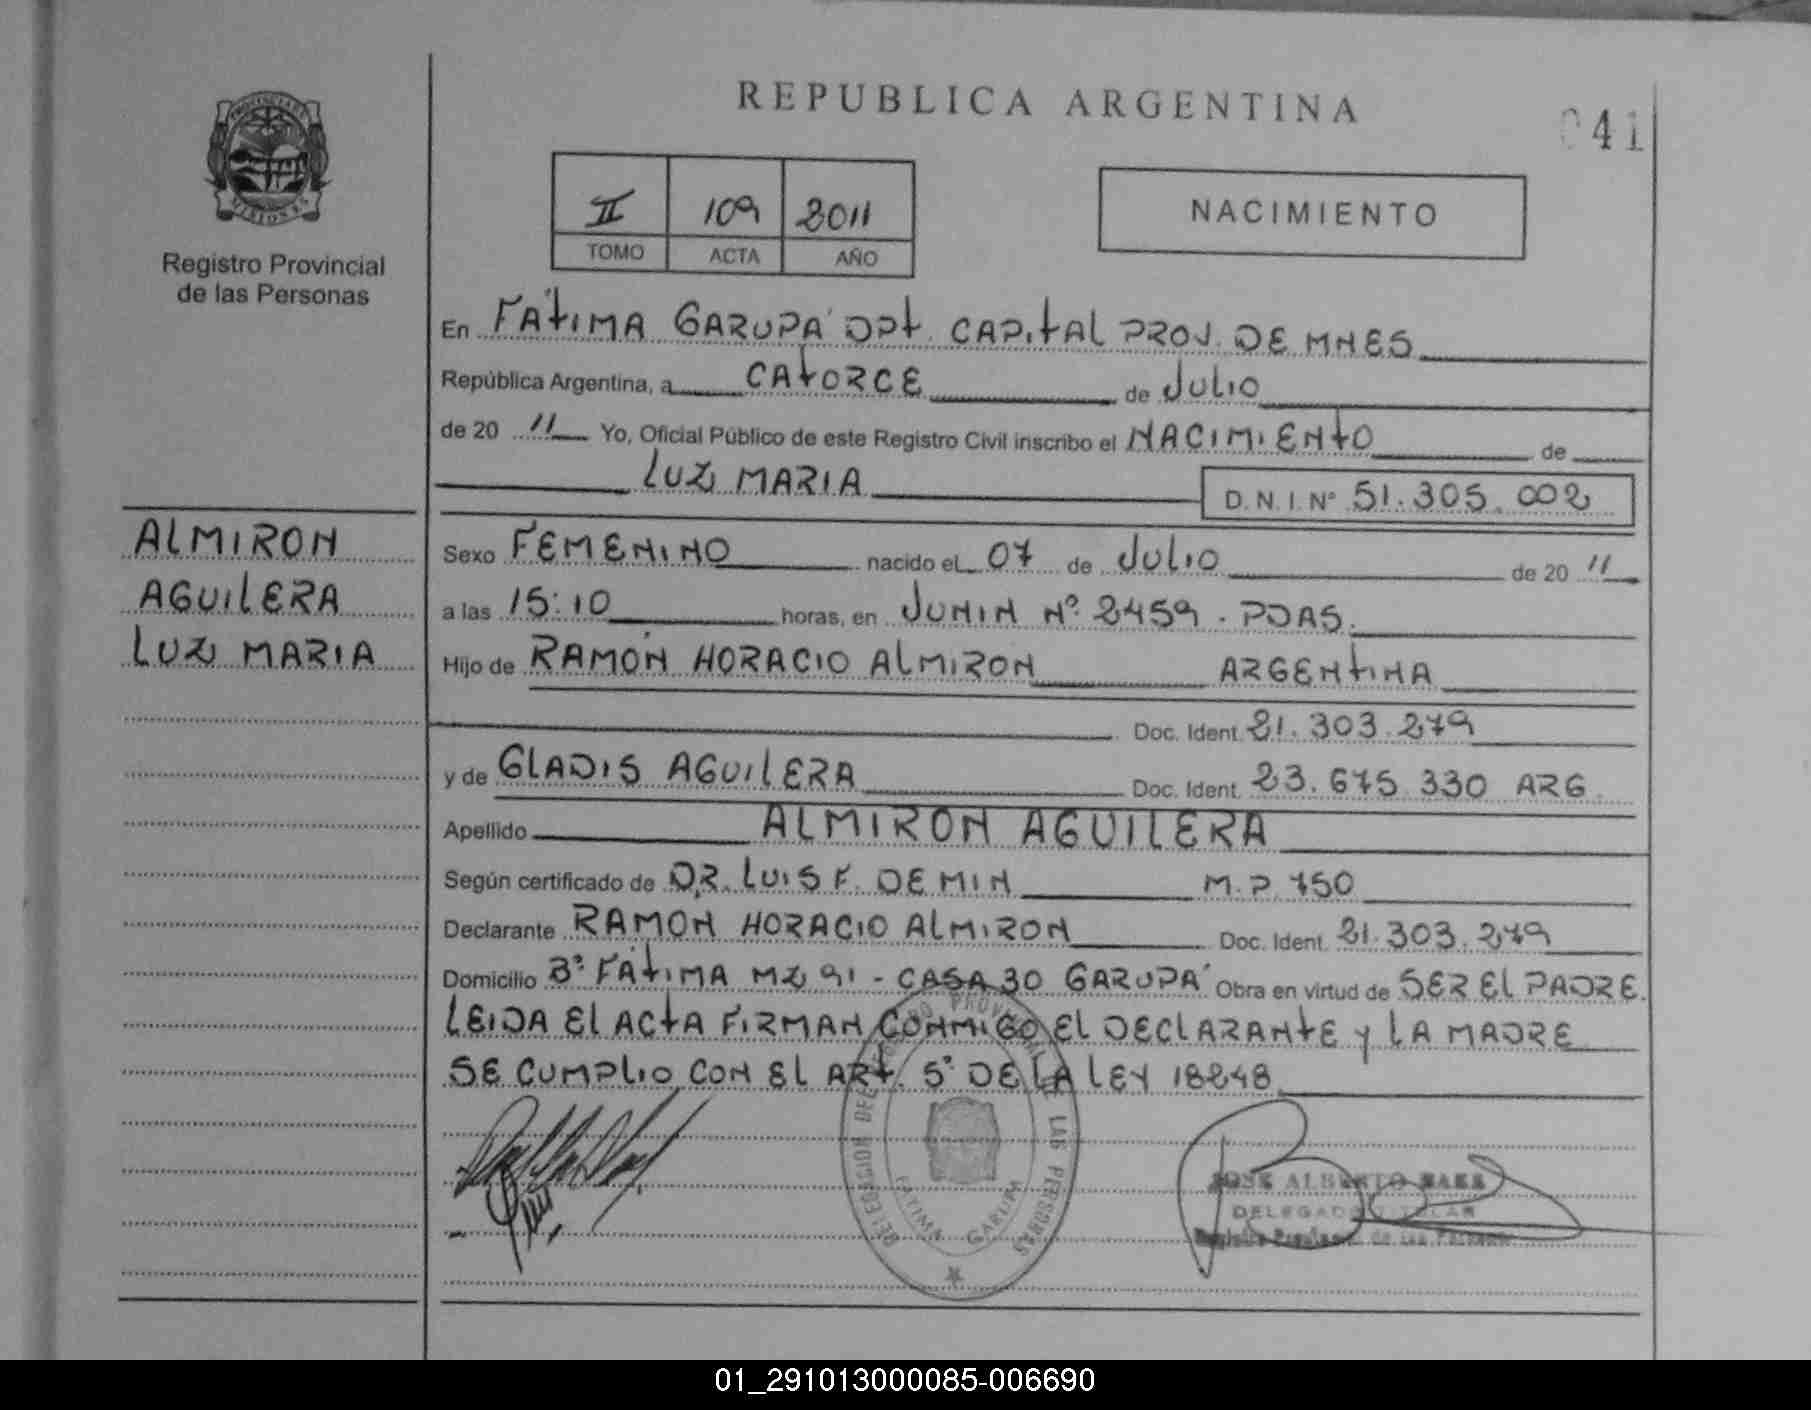 REPUBLICA ARGENTINA
041
PROVINCIA DE
MISIONES
Registro Provincial
de las Personas
II 109 2011
TOMO ACTA AÑO
NACIMIENTO
En FÁTIMA GARUPÁ DPT. CAPITAL PROV. DE MNES
República Argentina, a CATORCE de JULIO
de 20 11 Yo, Oficial Público de este Registro Civil inscribo el NACIMIENTO de
LUZ MARIA D.N.I.Nº 51.305.002
ALMIRON
AGUILERA
LUZ MARIA
Sexo FEMENINO nacido el 07 de JULIO de 20 11
a las 15:10 horas, en JUNIN Nº 2459 - PDAS.
Hijo de RAMÓN HORACIO ALMIRON ARGENTINA
Doc. Ident. 21.303.279
y de GLADIS AGUILERA Doc. Ident. 23.675.330 ARG.
Apellido ALMIRON AGUILERA
Según certificado de DR. LUIS F. DEMIN M.P. 750
Declarante RAMON HORACIO ALMIRON Doc. Ident. 21.303.279
Domicilio Bº FÁTIMA MZ 91 - CASA 30 GARUPÁ Obra en virtud de SER EL PADRE.
LEIDA EL ACTA FIRMAN CONMIGO EL DECLARANTE Y LA MADRE
SE CUMPLIO CON EL ART. 5º DE LA LEY 18248
DELEGACION DEL REGISTRO PROVINCIAL DE LAS PERSONAS
FATIMA GARUPA
JOSE ALBERTO BAEZ
DELEGADO TITULAR
Registro Provincial de las Personas
01_291013000085-006690